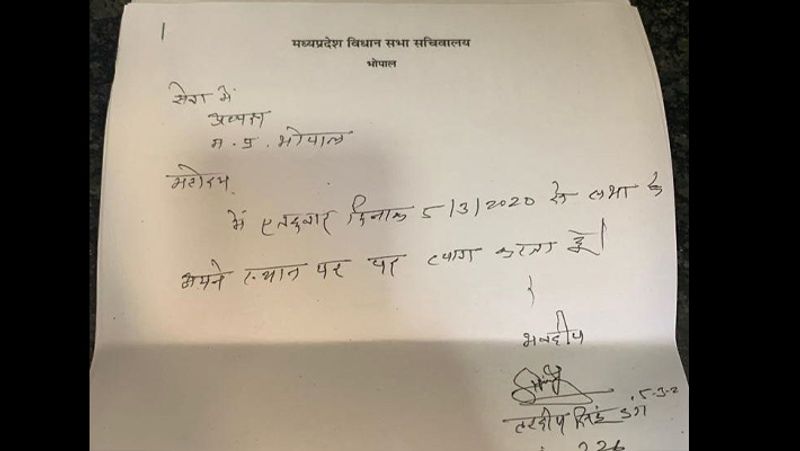 मध्यप्रदेश विधान सभा सचिवालय
भोपाल
सेवा में
अध्यक्ष
म. प्र. भोपाल
महोदय
में एतद्द्वारा दिनांक 5/3/2020 से सभा के
अपने स्थान पर पद त्याग करता हूँ।
भवदीय
5-3-2
हरदीप सिंह डंग
226